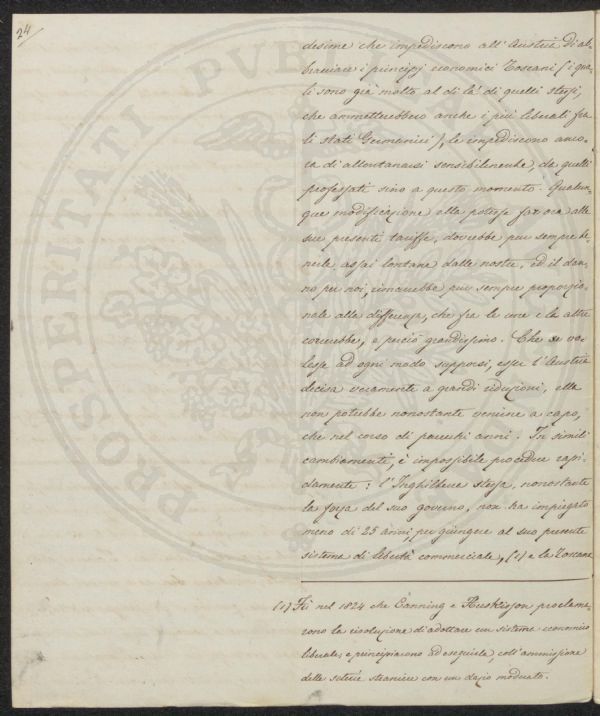 24
desime che impediscono all'Austria di ab-
bracciare i principj economici Toscani (i qua-
li sono già molto al di là di quelli stessi,
che ammetterebbero anche i più liberali fra
li stati Germanici), le impediscono anco-
ra di allontanarsi sensibilmente, da quelli
professati sino a questo momento. Qualun-
que modificazione ella potesse far ora alle
sue presenti tariffe, dovrebbe pur sempre te-
nerle assai lontane dalle nostre, ed il dan-
no per noi, rimarrebbe pur sempre proporzio-
nale alla differenza, che fra le une e le altre
correrebbe, e perciò grandissimo. Che se vo-
lesse ad ogni modo supporsi, esser l'Austria
decisa veramente a grandi riduzioni, ella
non potrebbe nonostante venirne a capo,
che nel corso di parecchi anni. In simili
cambiamenti, è impossibile procedere rapi-
damente: l'Inghilterra stessa, nonostante
la forza del suo governo, non ha impiegato
meno di 25 anni, per giungere al suo presente
sistema di libertà commerciale, (1) e la Toscana
(1) Fù nel 1824 che Canning e Huskisson proclama-
rono la risoluzione di adottare un sistema economico
liberale, e principiarono ad eseguirla, coll'ammissione
delle seterie straniere con un dazio moderato.
PROSPERITATI PVBLICAE